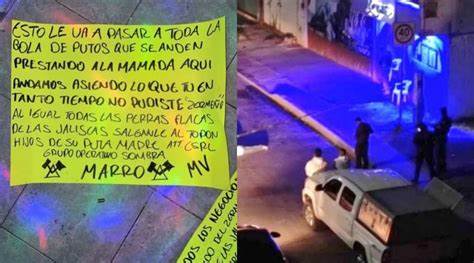 ESTO LE VA A PASAR A TODA LA
BOLA DE PUTOS QUE SE ANDEN
PRESTANDO A LA MAMADA AQUI
ANDAMOS ASIENDO LO QUE TU EN
TANTO TIEMPO NO PUDISTE
AL IGUAL TODAS LAS PERRAS FLACAS
DE LAS JALISCAS SALGANLE AL TOPON
HIJOS DE SU PUTA MADRE ATT CSRL
GRUPO OPERATIVO SOMBRA
MARRO MV
DOS LOS NEGOCIO
40